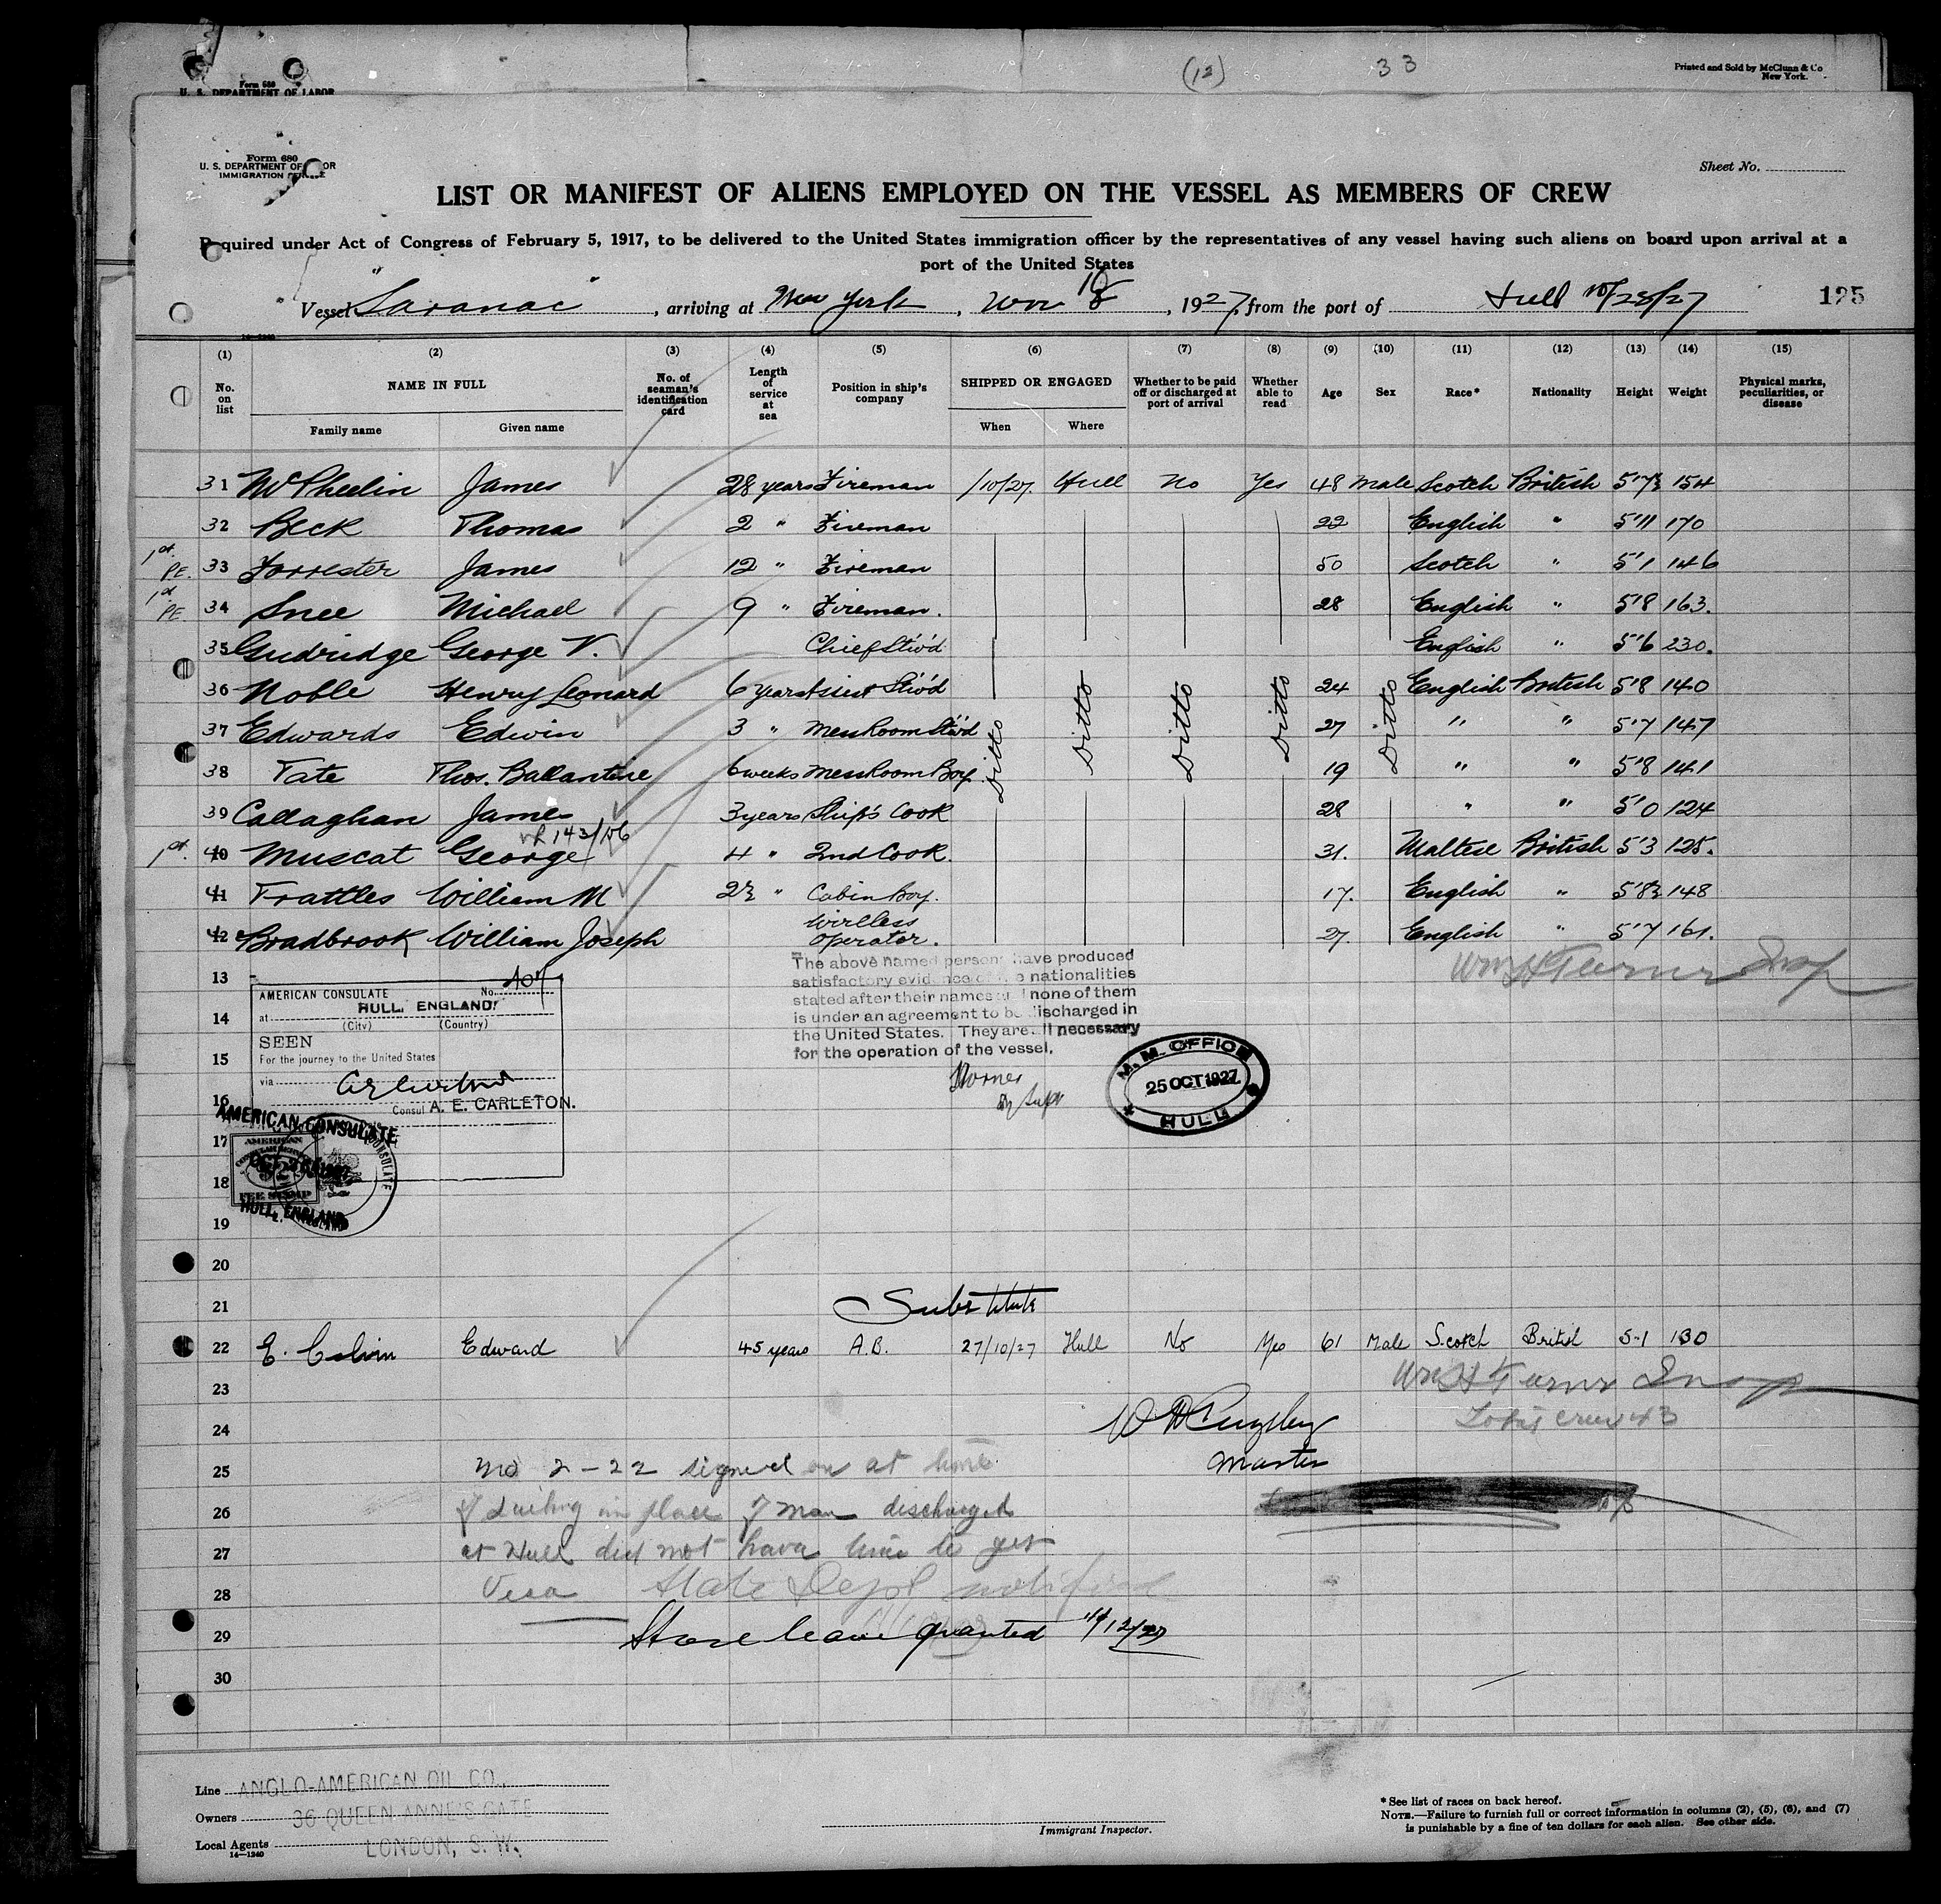 (12) 33 Printed and Sold by McClunn & Co
New York.
Form 680
U. S. DEPARTMENT OF LABOR
Form 680
U. S. DEPARTMENT OF OR
IMMIGRATION SERVICE
Sheet No.
LIST OR MANIFEST OF ALIENS EMPLOYED ON THE VESSEL AS MEMBERS OF CREW
Required under Act of Congress of February 5, 1917, to be delivered to the United States immigration officer by the representatives of any vessel having such aliens on board upon arrival at a
port of the United States
Vessel "Saranac", arriving at New York, Nov 1927, from the port of Hull 10/28/27 125
14-1240
(1) (2) (3) (4) (5) (6) (7) (8) (9) (10) (11) (12) (13) (14) (15)
No. on list
NAME IN FULL
Family name Given name
No. of seaman's identification card
Length of service at sea
Position in ship's company
SHIPPED OR ENGAGED
When Where
Whether to be paid off or discharged at port of arrival
Whether able to read
Age Sex Race* Nationality Height Weight
Physical marks, peculiarities, or disease
31 McPheelin James 28 years Fireman /10/27. Hull No Yes 48 Male Scotch British 5'7½ 154
32 Beck Thomas 2 " Fireman 22 English " 5'11 170
1st PE. 33 Forrester James 12 " Fireman 50 Scotch " 5'1 146
1st PE 34 Snee Michael 9 " Fireman. 28 English " 5'8 163.
35 Gudridge George V. Chief Stw'd English " 5'6 230.
36 Noble Henry Leonard 6 years Assist Stw'd 24 English British 5'8 140
37 Edwards Edwin 3 " MessRoom Stw'd 27 " " 5'7 147
Ditto Ditto Ditto Ditto Ditto
38 Tate Thos. Ballantine 6 weeks MessRoom Boy 19 " " 5'8 141
39 Callaghan James 3 years Ship's Cook 28 " " 5'0 124
143/156
1st. 40 Muscat George 4 " 2nd Cook. 31. Maltese British 5'3 125.
41 Trattles William M 2½ " Cabin Boy. 17. English " 5'8½ 148
42 Bradbrook William Joseph Wireless Operator. 27. English " 5'7 161.
Wm H Turner Insp
The above named persons have produced
satisfactory evidence of the nationalities
stated after their names and none of them
is under an agreement to be discharged in
the United States. They are all necessary
for the operation of the vessel.
13
14
15
16
17
18
19
20
21
AMERICAN CONSULATE No. 407
at HULL, ENGLAND.
(City) (Country)
SEEN
For the journey to the United States
via
Consul A. E. CARLETON.
AMERICAN CONSULATE
AMERICAN
FEE STAMP
HULL, ENGLAND
M. M. OFFICE
25 OCT 1927
HULL
Substitute
22 E. Colvin Edward 45 years A.B. 27/10/27 Hull No Yes 61 Male Scotch British 5-1 130
23 Wm H Turner Insp
24 Total Crew 43
Master
25 No 2-22 signed on at time
26 of sailing in place of man discharged
27 at Hull did not have time to get
28 Visa State Dept notified
29 Shore leave granted 11/12/27
30
Line ANGLO-AMERICAN OIL CO.,
Owners 36 QUEEN ANNE'S GATE
Local Agents LONDON, S. W.
14-1240
Immigrant Inspector.
* See list of races on back hereof.
NOTE.—Failure to furnish full or correct information in columns (2), (5), (6), and (7)
is punishable by a fine of ten dollars for each alien. See other side.